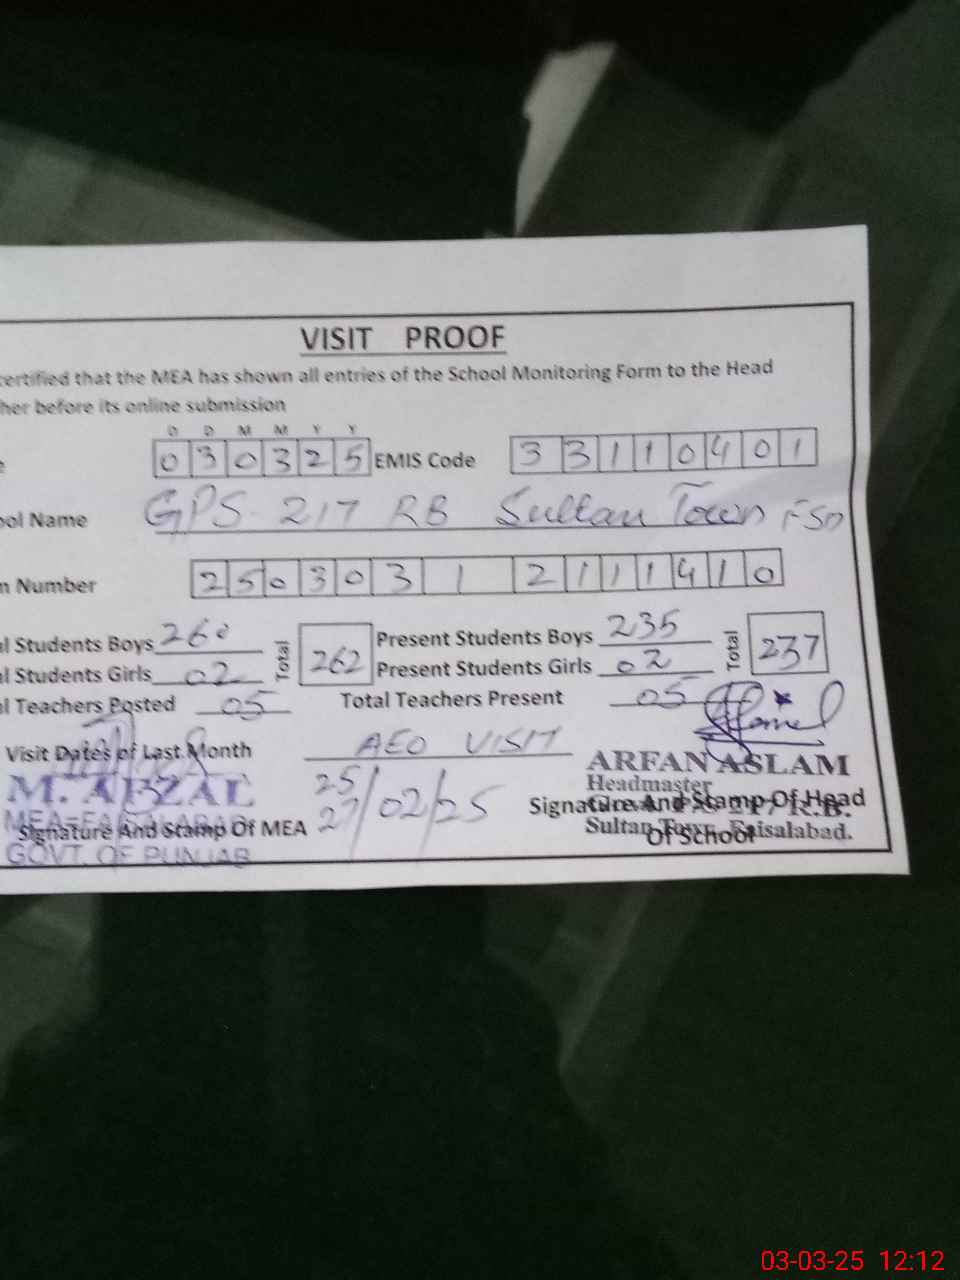 VISIT PROOF
certified that the MEA has shown all entries of the School Monitoring Form to the Head
her before its online submission
D D M M Y Y
0 3 0 3 2 5 EMIS Code 3 3 1 1 0 4 0 1
ool Name GPS 217 RB Sultan Town FSD
m Number 2 5 0 3 0 3 1 2 1 1 1 4 1 0
al Students Boys 260 Total 262 Present Students Boys 235 Total 237
al Students Girls 02 Present Students Girls 02
al Teachers Posted 05 Total Teachers Present 05
Visit Dates of Last Month AEO VISIT
25
27/02/25
M. AFZAL
MEA-FAISALABAD
GOVT. OF PUNJAB
Signature And Stamp Of MEA
ARFAN ASLAM
Headmaster
R.B.
Sultan Town, Faisalabad.
Signature And Stamp Of Head
Of School
03-03-25 12:12